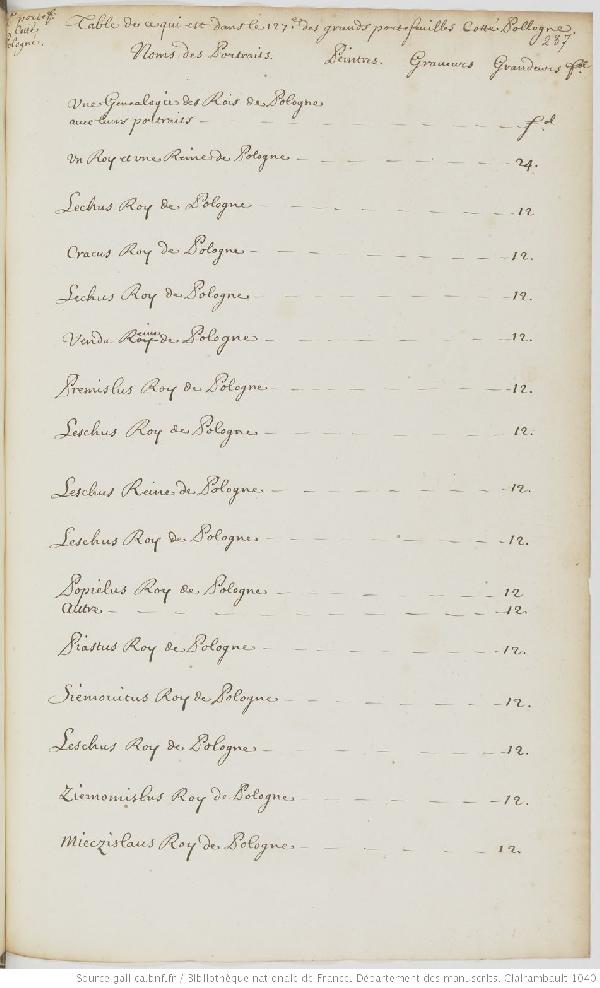 portef.
Cotté
Pologne.
Table de ce qui est dans le 127.e des grands portefeuilles Cotté Pollogne.
287
Noms des Portraits. Peintres. Graveurs Grandeurs
Vne Genealogie des Rois de Pologne
avec leurs portraits - f.d
Vn Roy et vne Reine de Pologne - 24.
Lechus Roy de Pologne - 12
Cracus Roy de Pologne - 12.
Lechus Roy de Pologne - 12.
Venda Reine de Pologne - 12.
Premislus Roy de Pologne - 12.
Leschus Roy de Pologne - 12.
Leschus Reine de Pologne - 12.
Leschus Roy de Pologne - 12.
Popielus Roy de Pologne - 12
autre - 12.
Piastus Roy de Pologne - 12.
Siemovitus Roy de Pologne - 12.
Leschus Roy de Pologne - 12.
Ziemomislus Roy de Pologne - 12.
Mieczislaus Roy de Pologne - 12.
Source gallica.bnf.fr / Bibliothèque nationale de France. Département des manuscrits. Clairambault 1040